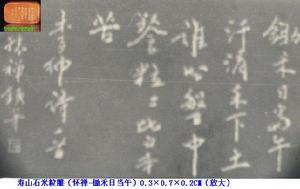 鋤禾日當午
汗滴禾下土
誰知盤中
餐粒粒皆辛
苦
李绅诗一首
寿山石米粒雕（怀禅-锄禾日当午）0.3×0.7×0.2CM（放大）